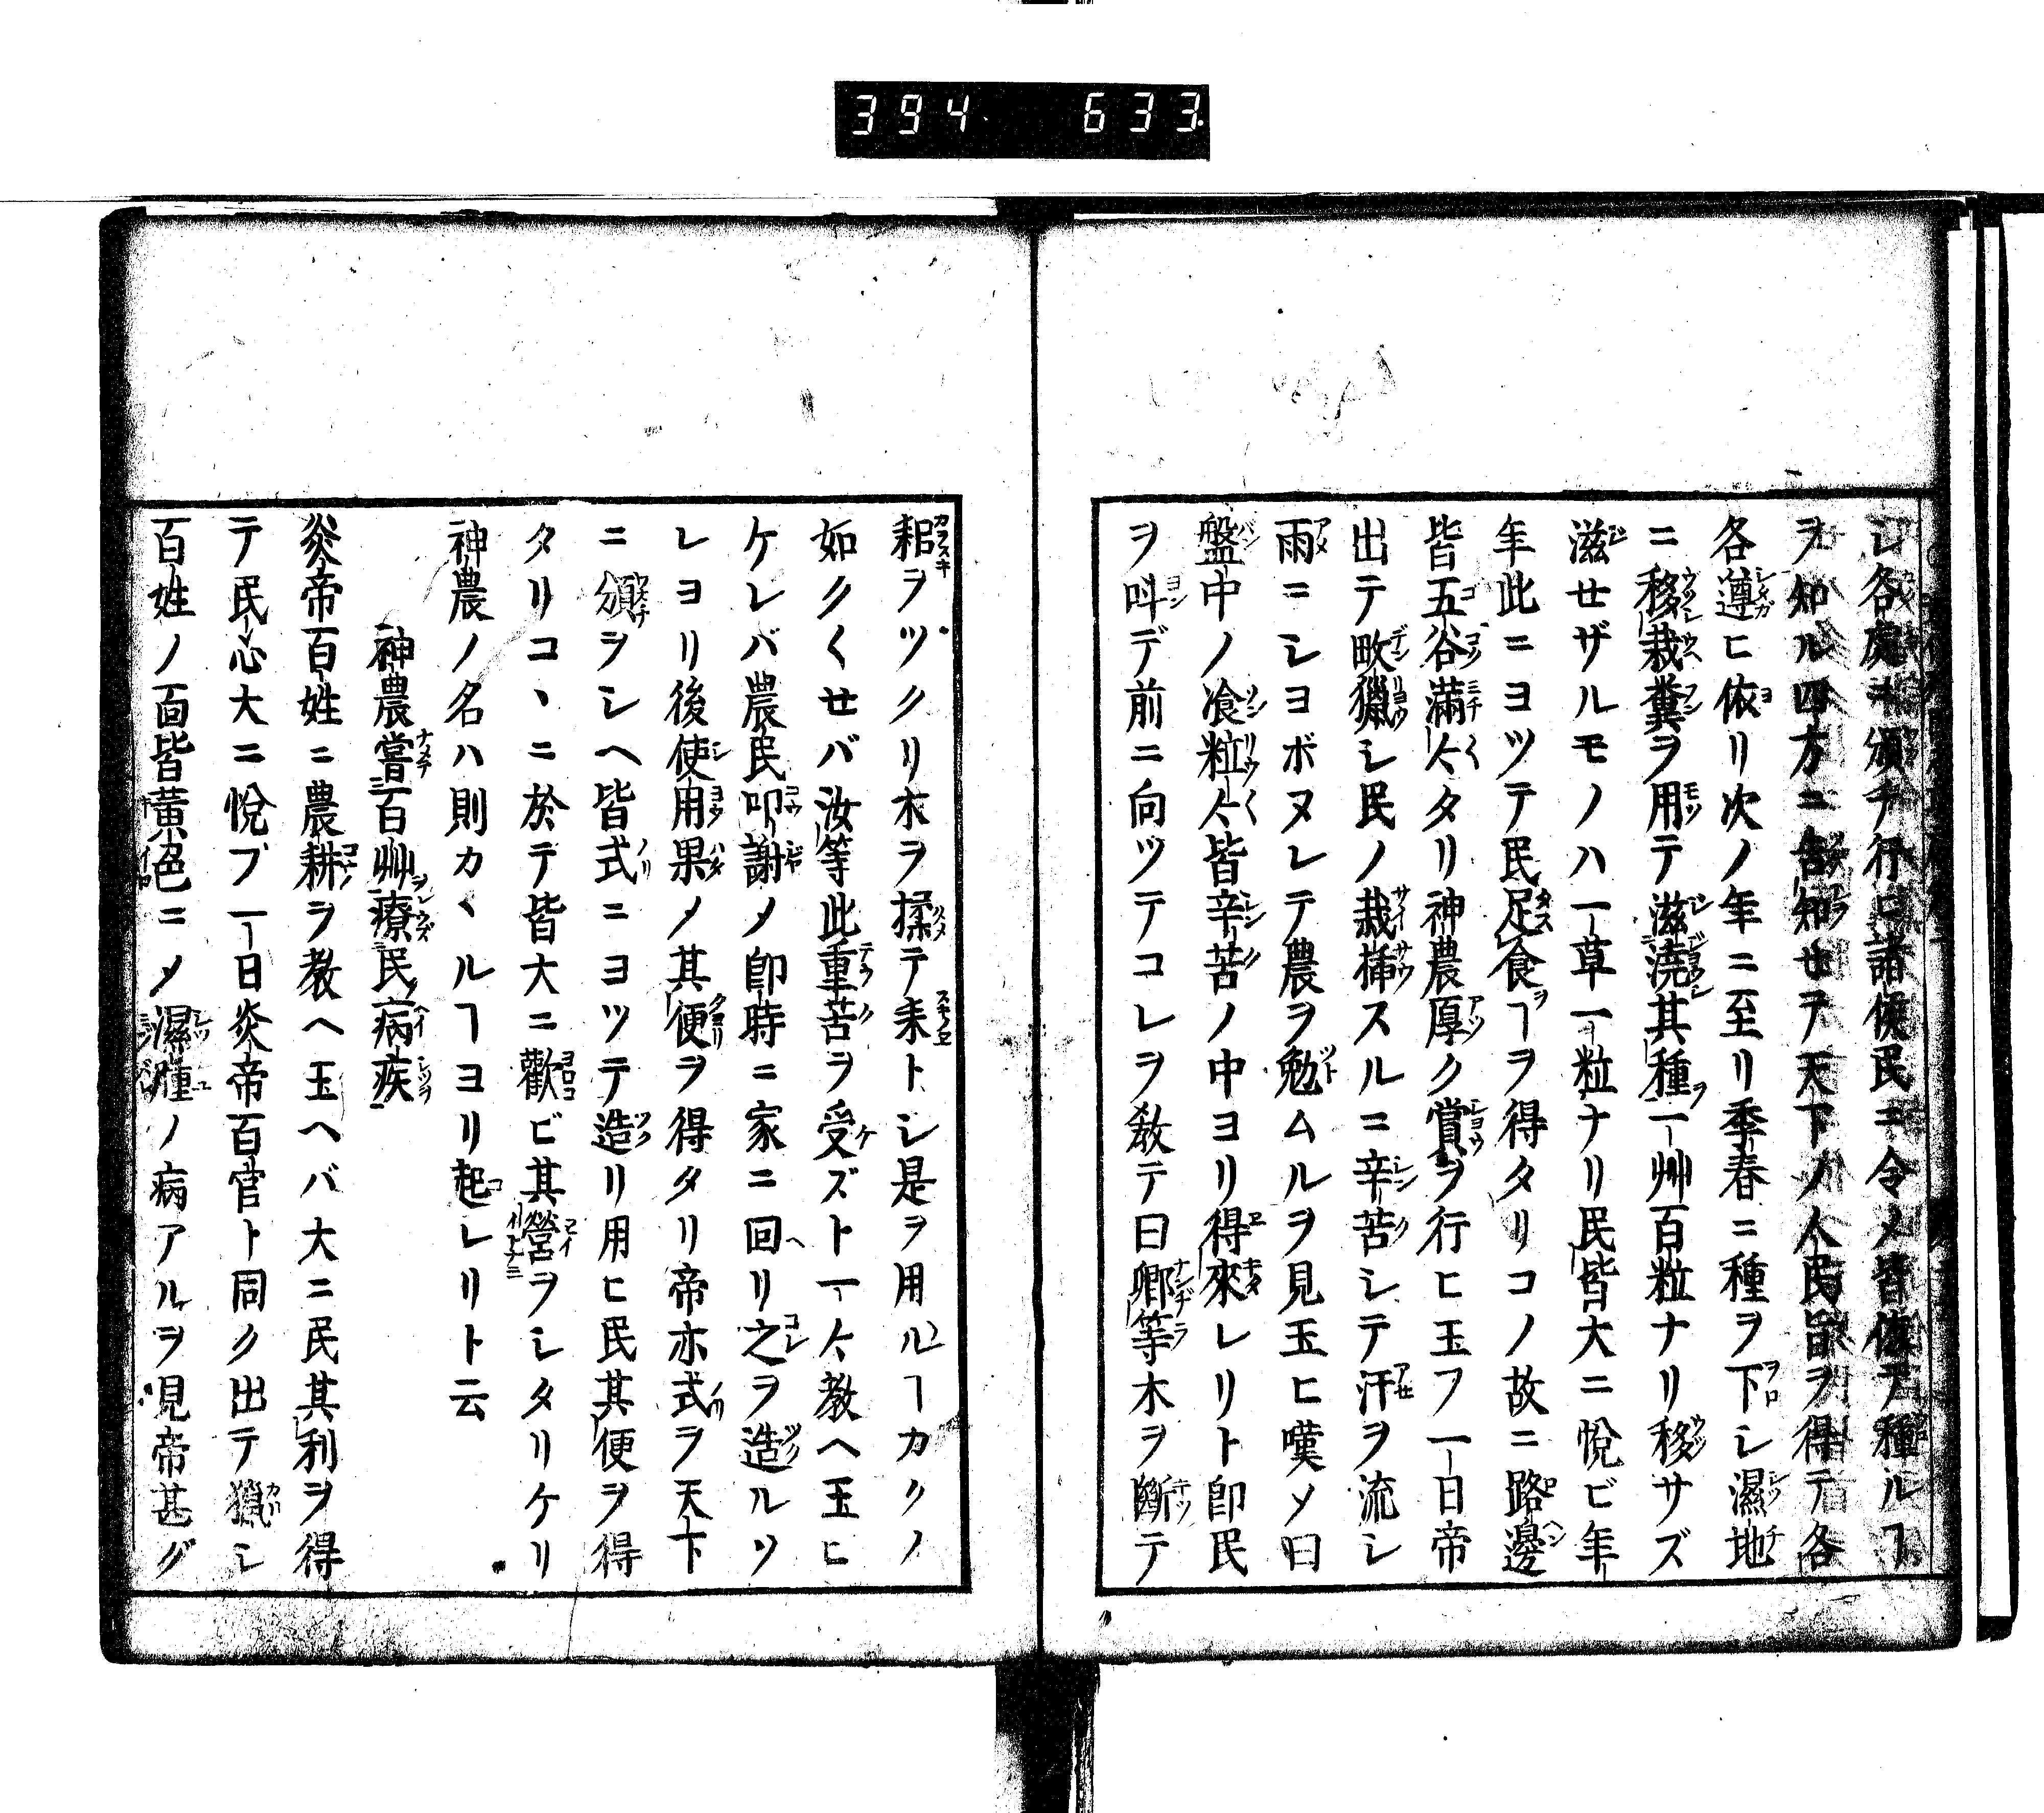 394. 633.
シ各處ヲ頒チ行ヒ諸侯民ニ令メ皆依テ種ルヿ
ヲ知ル四方ニ告知セヲ天下ノ人民旨ヲ得テ各
各遵ヒ依リ次ノ年ニ至リ季春ニ種ヲ下シ濕地
ニ移栽糞ヲ用テ滋澆其種一艸百粒ナリ移サズ
滋セザルモノハ一草一粒ナリ民皆大ニ悅ビ年
年此ニヨツテ民足食ヿヲ得タリコノ故ニ路邊
皆五谷滿々タリ神農厚ク賞ヲ行ヒ玉フ一日帝
出テ畋獵シ民ノ栽插スルニ辛苦シテ汗ヲ流シ
雨ニシヨボヌレテ農ヲ勉ムルヲ見玉ヒ嘆ソ曰
盤中ノ飡粒々皆辛苦ノ中ヨリ得來レリト卽民
ヲ呌デ前ニ向ツテコレヲ敎テ曰卿等木ヲ斷テ
耜ヲツクリ木ヲ揉テ耒トシ是ヲ用ルヿカクノ
如クくセバ汝等此重苦ヲ受ズト一々敎ヘ玉ヒ
ケレバ農民叩謝メ卽時ニ家ニ回リ之ヲ造ルソ
レヨリ後使用果メ其便ヲ得タリ帝亦式ヲ天下
ニ頒ヲシヘ皆式ニヨツテ造リ用ヒ民其便ヲ得
タリコヽニ於テ皆大ニ歡ビ其營ヲシタリケリ
神農ノ名ハ則カヽルヿヨリ起レリト云
神農嘗百艸療民病疾
炎帝百姓ニ農耕ヲ敎ヘ玉ヘバ大ニ民其利ヲ得
テ民心大ニ悅ブ一日炎帝百官ト同ク出テ獵シ
百姓ノ面皆黃色ニメ濕腫ノ病アルヲ見帝甚ダ